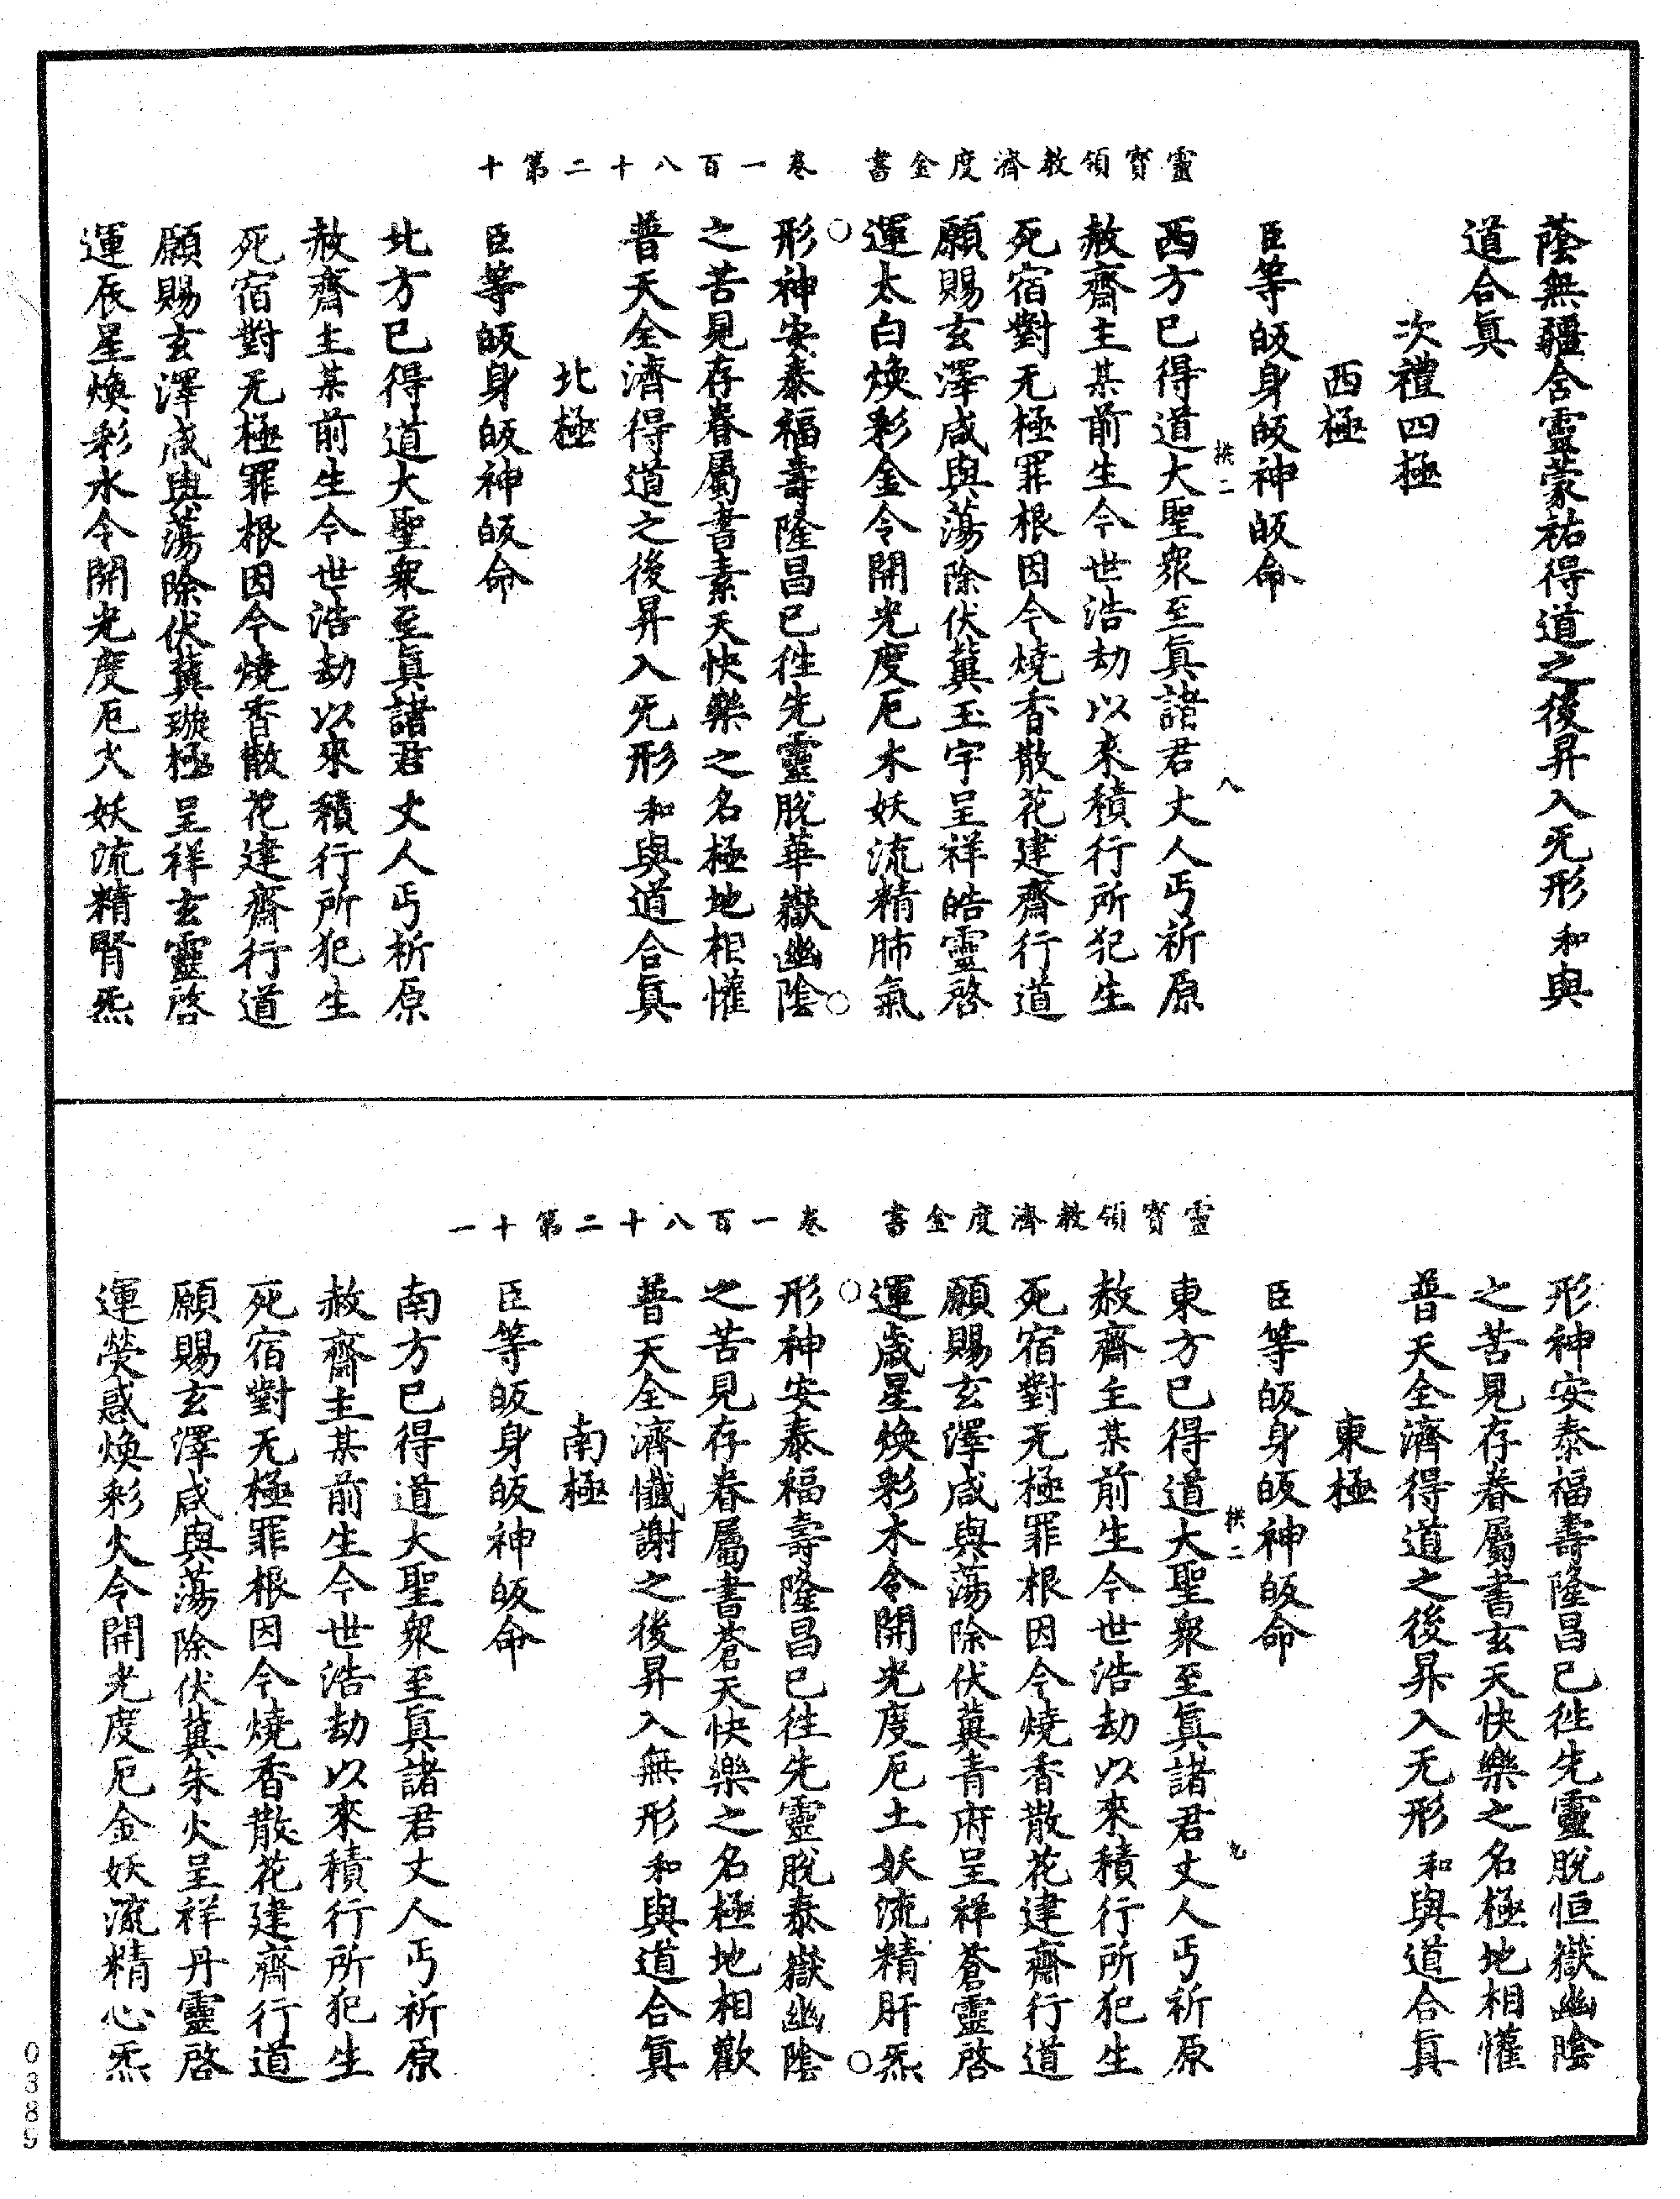 靈寶領教濟度金書　卷一百八十二第十
蔭無疆含靈蒙祐得道之後昇入旡形和與
道合眞
次禮四極
西極
臣等皈身皈神皈命
拱二　八
西方已得道大聖衆至眞諸君丈人丐祈原
赦齋主某前生今世浩劫以來積行所犯生
死宿對无極罪根因今燒香散花建齋行道
願賜玄澤咸與蕩除伏冀玉宇呈祥皓靈啓
運太白煥彩金令開光度厄木妖流精肺氣
形神安泰福壽隆昌已徃先靈脫華嶽幽陰
之苦見存眷屬書素天快樂之名極地相懽
普天全濟得道之後昇入旡形和與道合眞
北極
臣等皈身皈神皈命
北方已得道大聖衆至眞諸君丈人丐祈原
赦齋主某前生今世浩劫以來積行所犯生
死宿對无極罪根因今燒香散花建齋行道
願賜玄澤咸與蕩除伏冀璇極呈祥玄靈啓
運辰星煥彩水令開光度厄火妖流精腎炁
靈寶領教濟度金書　卷一百八十二第十一
形神安泰福壽隆昌已徃先靈脫恒嶽幽陰
之苦見存眷屬書玄天快樂之名極地相懽
普天全濟得道之後昇入无形和與道合眞
東極
臣等皈身皈神皈命
拱二　九
東方已得道大聖衆至眞諸君丈人丐祈原
赦齋主某前生今世浩劫以來積行所犯生
死宿對无極罪根因今燒香散花建齋行道
願賜玄澤咸與蕩除伏冀青府呈祥蒼靈啓
運歲星煥彩木令開光度厄土妖流精肝炁
形神安泰福壽隆昌已徃先靈脫泰嶽幽陰
之苦見存眷屬書蒼天快樂之名極地相歡
普天全濟懺謝之後昇入無形和與道合眞
南極
臣等皈身皈神皈命
南方已得道大聖衆至眞諸君丈人丐祈原
赦齋主某前生今世浩劫以來積行所犯生
死宿對无極罪根因今燒香散花建齋行道
願賜玄澤咸與蕩除伏冀朱火呈祥丹靈啓
運熒惑煥彩火令開光度厄金妖流精心炁
0389